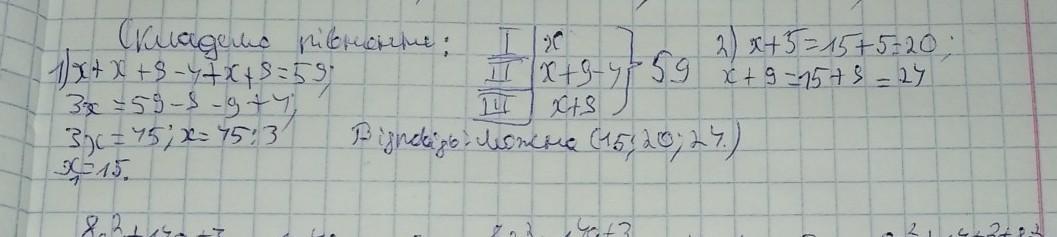 Складемо рівняння:
1) x + x + 9 - 4 + x + 9 = 59;
3x = 59 - 9 - 9 + 4;
3x = 45; x = 45 : 3
x = 15.
I x
II x + 9 - 4
III x + 9
} 59
2) x + 5 = 15 + 5 = 20;
x + 9 = 15 + 9 = 24
Відповідь: можна (15; 20; 24.)